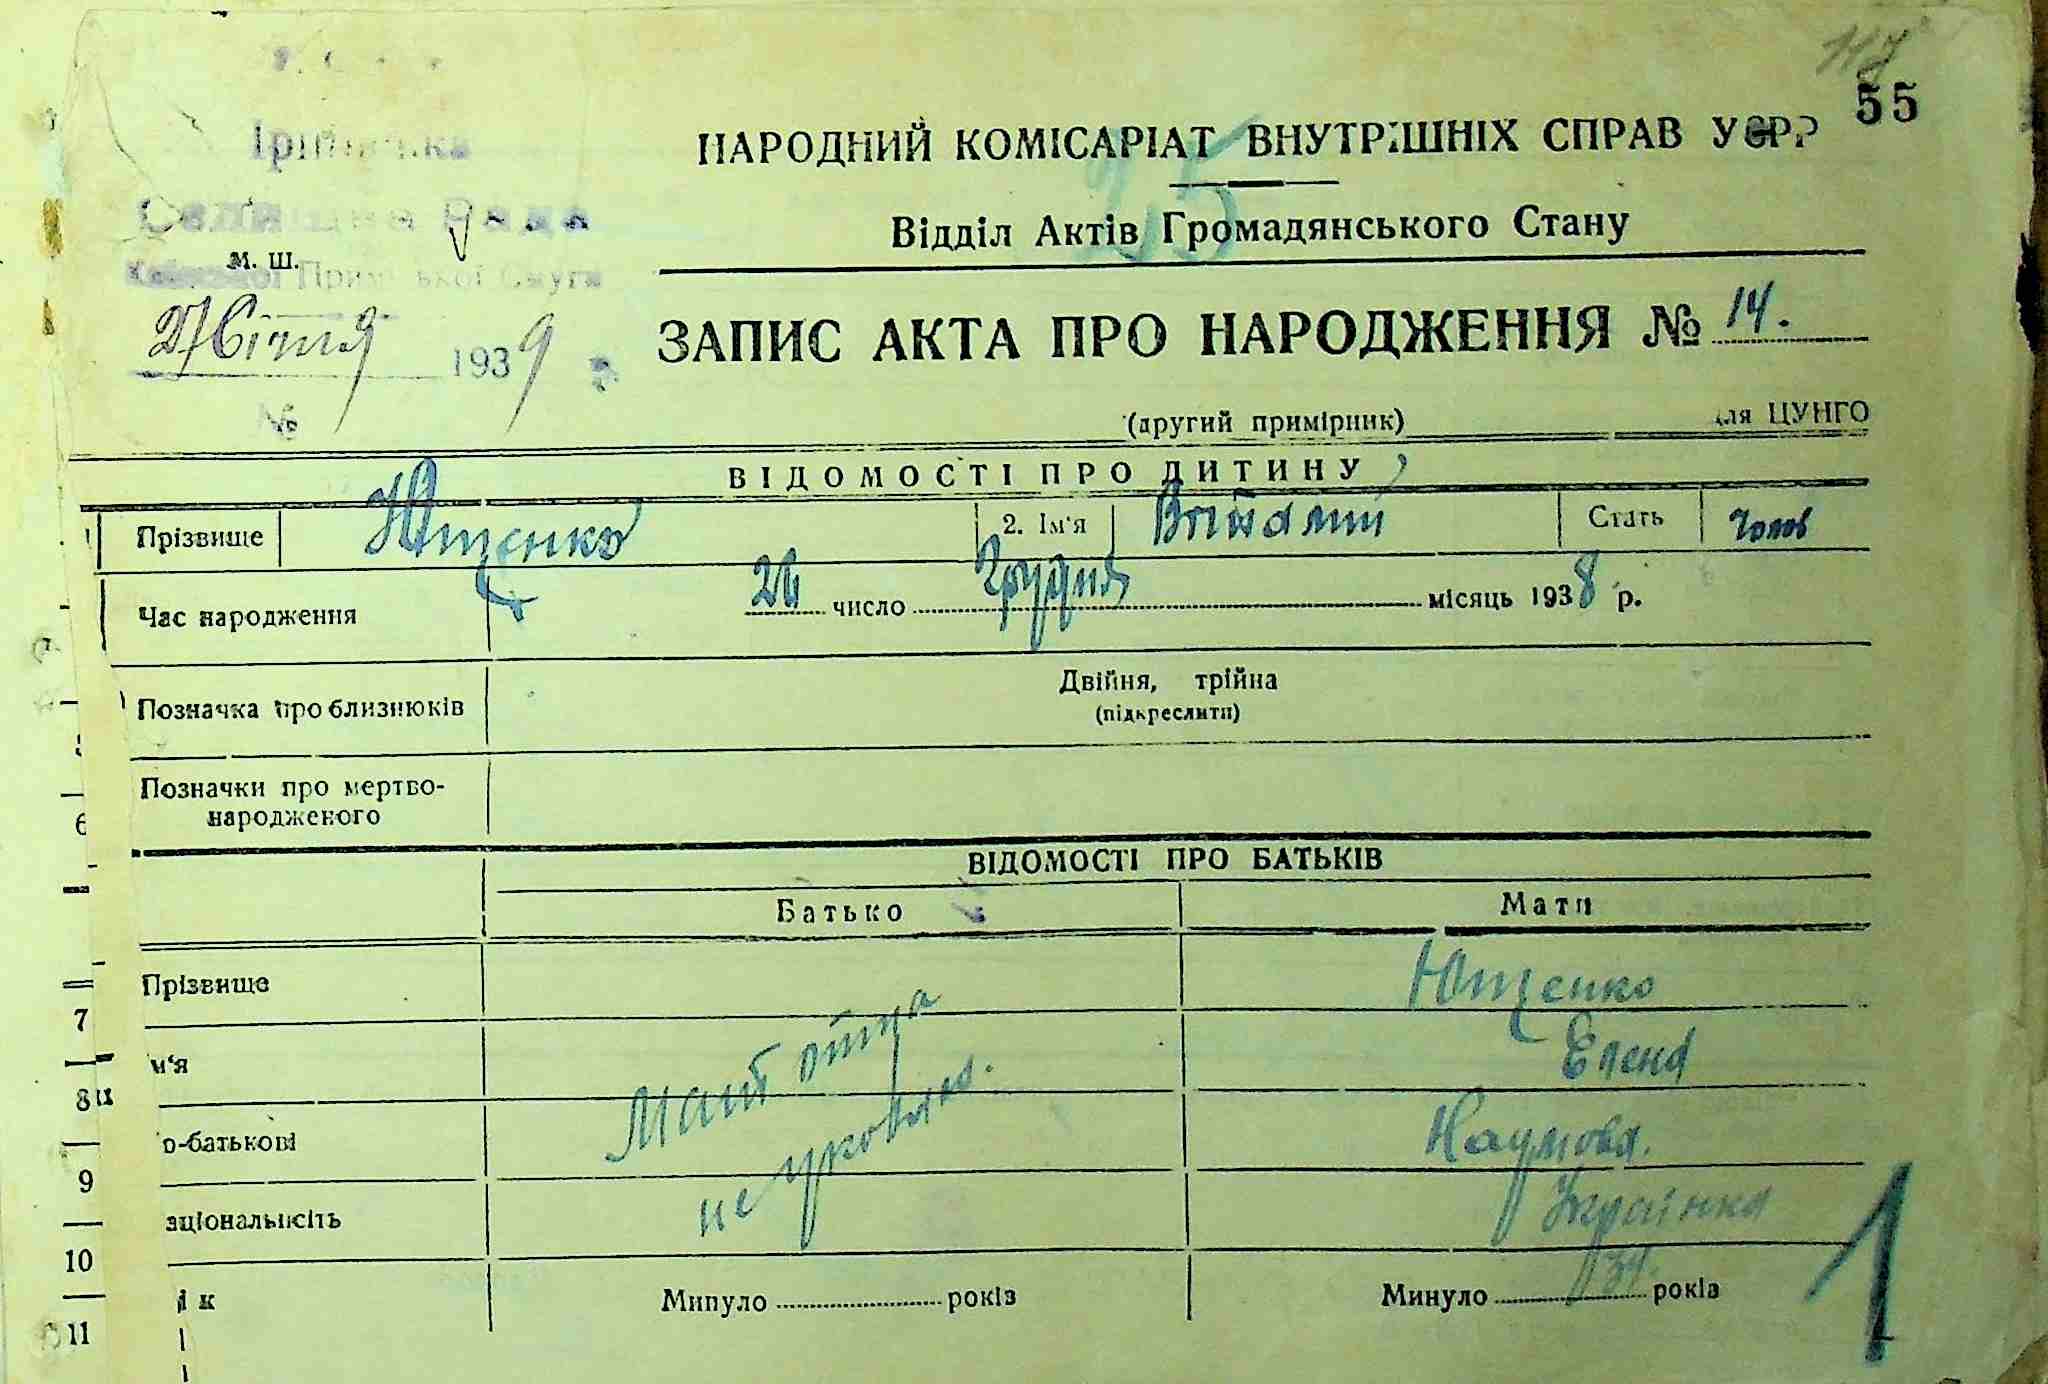 117
55
НАРОДНИЙ КОМІСАРІАТ ВНУТРІШНІХ СПРАВ УСРР
Відділ Актів Громадянського Стану
Селищна Рада
м. ш.
Київської Приміської Смуги
27 Січня 1939 р.
№
ЗАПИС АКТА ПРО НАРОДЖЕННЯ № 14.
(другий примірник) для ЦУНГО
ВІДОМОСТІ ПРО ДИТИНУ
Прізвище Ющенко 2. Ім'я Віталий Стать чолов
Час народження 26 число Грудня місяць 1938 р.
Позначка про близнюків Двійня, трійна
(підкреслити)
Позначки про мертво-
народженого
6
ВІДОМОСТІ ПРО БАТЬКІВ
Батько Мати
Прізвище Ющенко
7
м'я Елена
8
Мать отца
не
о-батькові Наумовa.
9
аціональність Українка
10
ік Минуло років Минуло 34. років
11
1